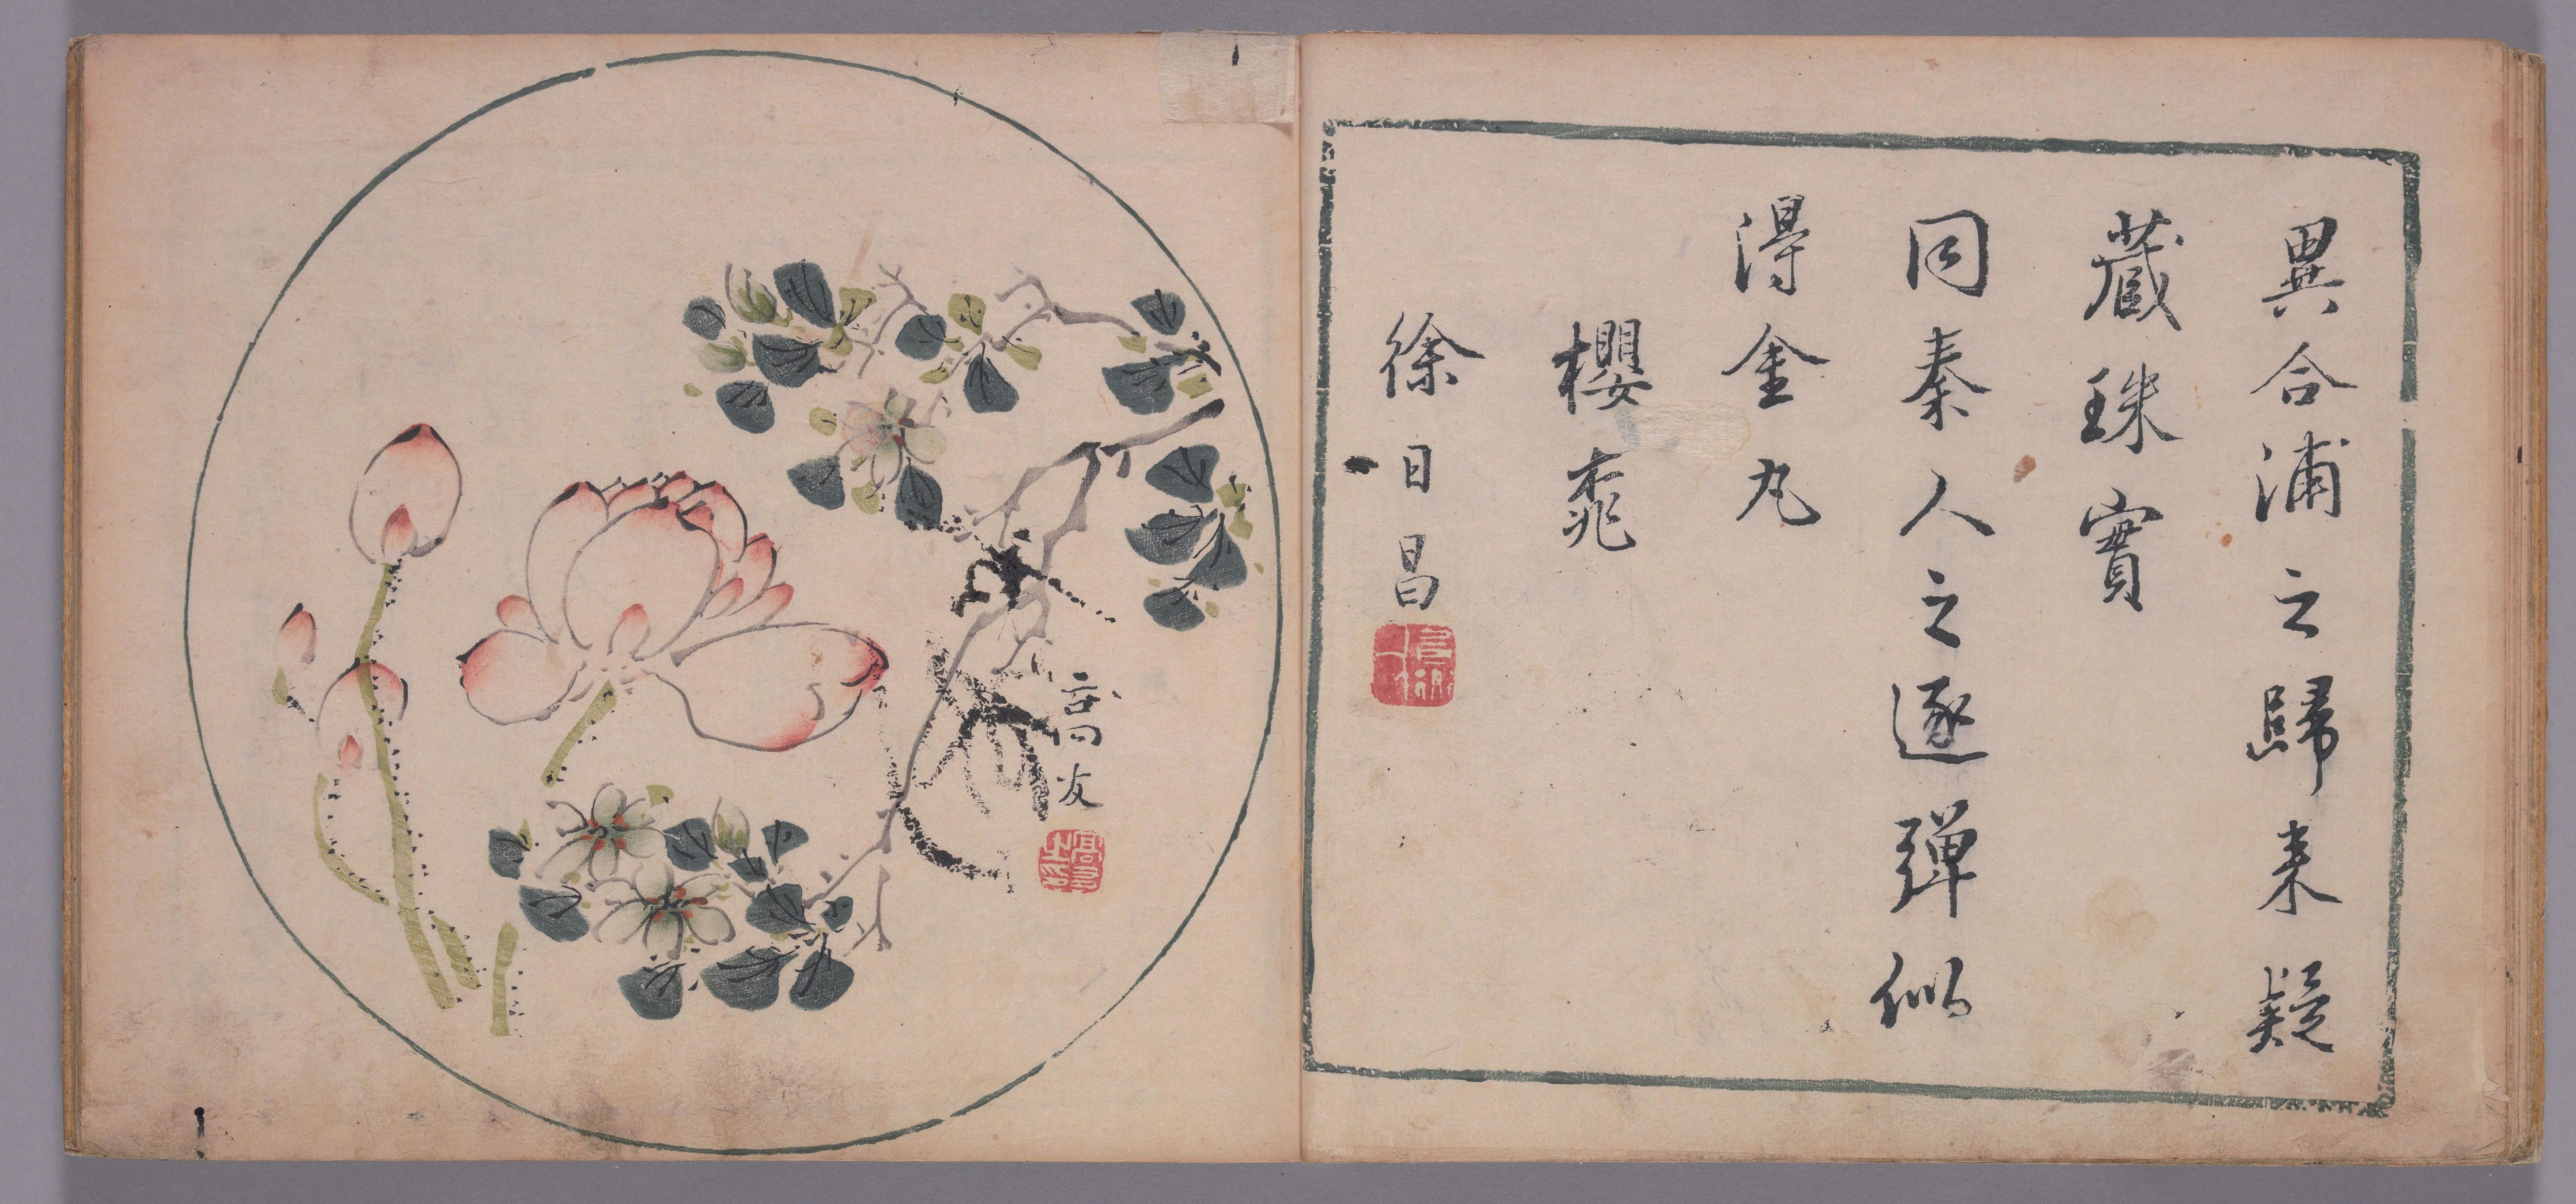 異合浦之歸来疑
蔵珠實
同秦人之逐彈似
得金丸
櫻桃
徐日昌
高友